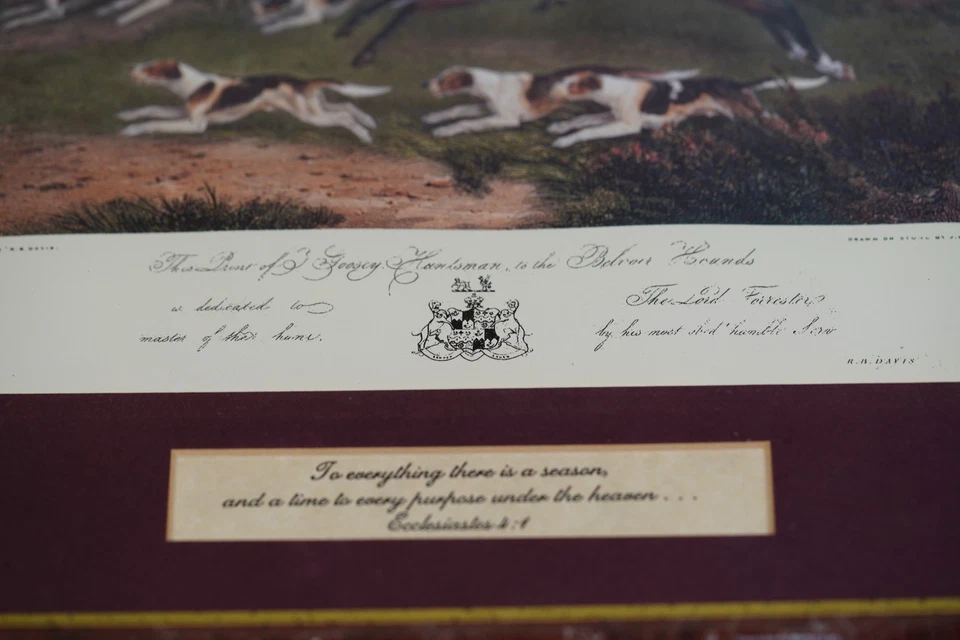 This Print of T Goosey, Huntsman, to the Belvoir Hounds
is dedicated to
The Lord Forrester
master of this hunt.
by his most obed humble Serv
R.B. DAVIS
To everything there is a season,
and a time to every purpose under the heaven . . .
Ecclesiastes